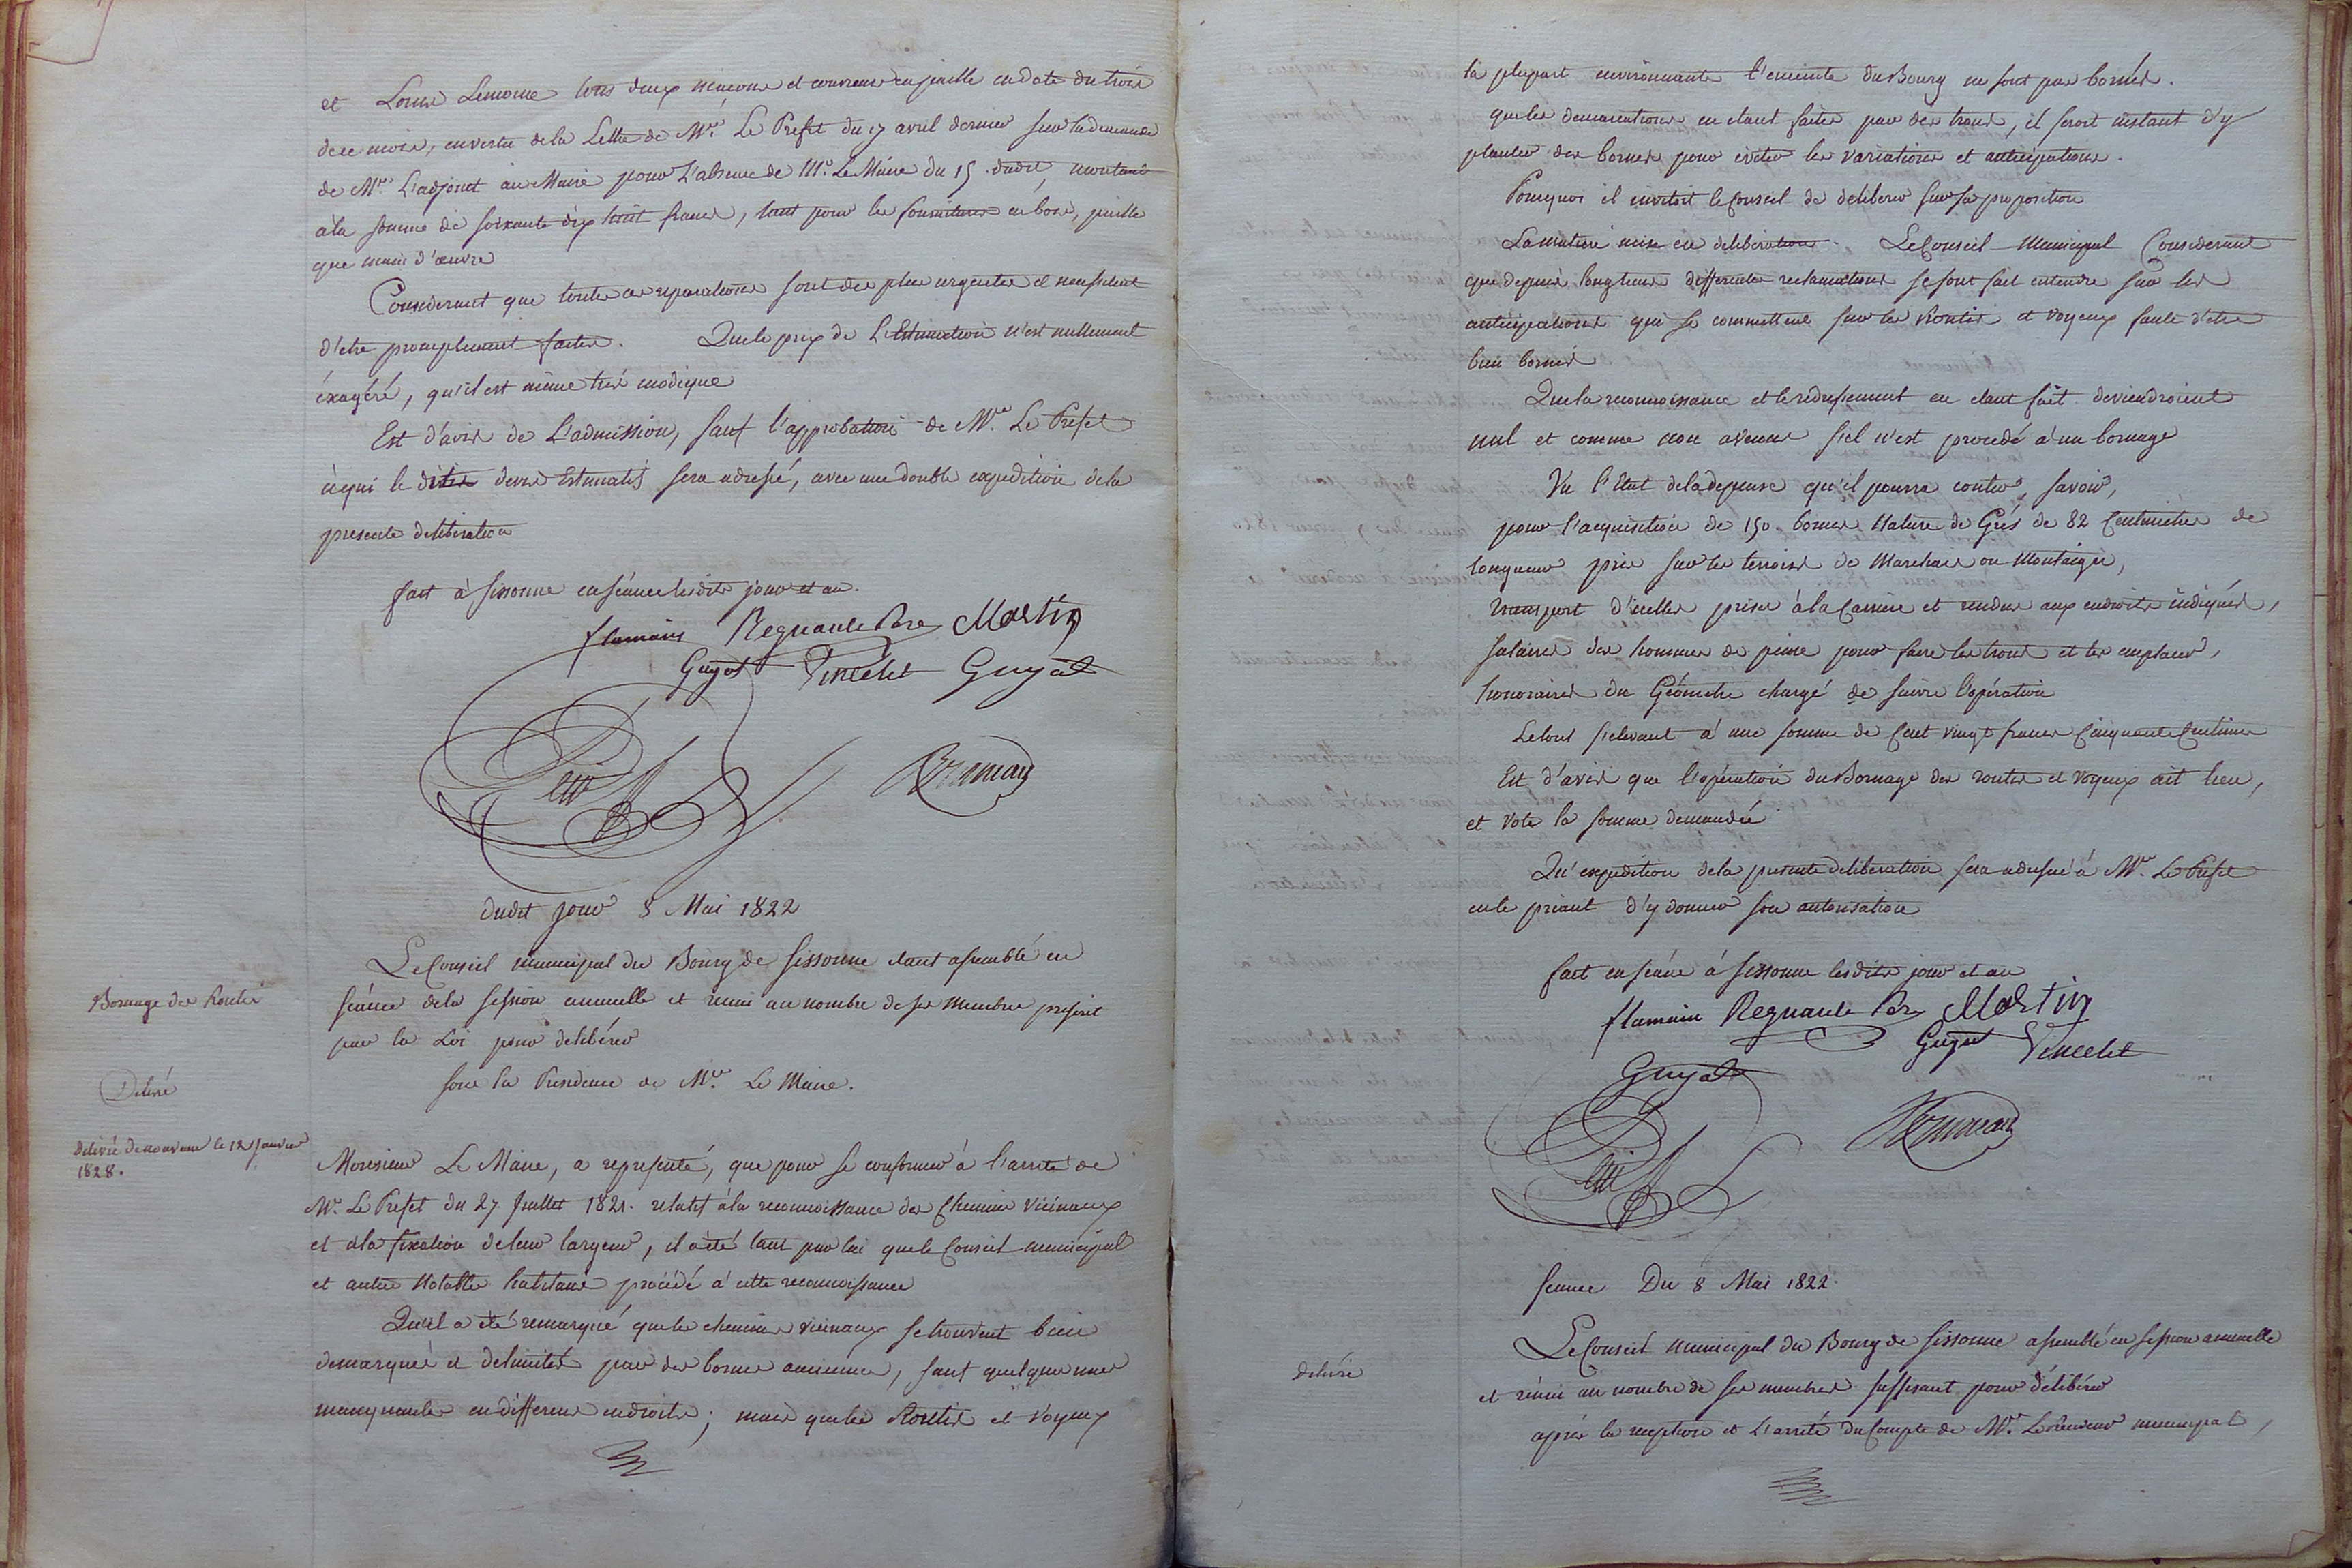 et Louis Lemoine tous deux maçons et couvreurs en paille en date du trois
de ce mois, en vertu de la Lettre de Mr. Le Prefet du 17 avril dernier sur la demande
de Mr. L'adjoint au Maire pour l'absence de Mr. Le Maire du 15 dudit, montant
à la somme de soixante dix huit francs, tant pour les fournitures en bois, paille
que main d'œuvre
Considerant que toutes ces reparations sont des plus urgentes et necessitent
d'etre promptement faites. Que le prix de L'Estimation n'est nullement
exagéré, qu'il est même très modique
Est d'avis de L'admission, sauf l'approbation de Mr. Le Prefet
à qui le dit devis Estimatif sera adressé, avec une double expedition de la
presente deliberation
fait à Sissonne en séance lesdits jour et an.
flamain Regnault Père Martin
Guyot Vincelet Guyot
Petit
dudit jour 8 Mai 1822
Bornage des Routes
Le Conseil municipal du Bourg de Sissonne etant assemblé en
séance de la session annuelle et reuni au nombre de ses membres prescrit
par la Loi pour delibérer
sous la Presidence de Mr. Le Maire.
Délivré
délivré de nouveau le 12 Janvier
1828.
Monsieur Le Maire, a representé, que pour se conformer à l'arrêté de
Mr. Le Prefet du 27 Juillet 1821. relatif à la reconnoissance des Chemins vicinaux
et à la fixation de leur largeur, il a été tant par lui que le Conseil municipal
et autres Notables habitans procédé à cette reconnoissance
Qu'il a été remarqué que les chemins vicinaux se trouvent bien
demarqués et delimités par des bornes anciennes, sauf quelques unes
manquantes en differens endroits; mais que les Routes et Voyeux
la plupart environnants l'enceinte du Bourg ne sont pas bornés.
que les demarcations en etant faites par des trous, il seroit instant d'y
planter des bornes pour eviter les variations et anticipations.
Pourquoi il invitoit le Conseil de deliberer sur sa proposition
La matiere mise en deliberation. Le Conseil Municipal Considerant
que depuis longtems differentes reclamations se sont fait entendre sur les
anticipations qui se commettent sur les Routes et Voyeux faute d'etre
bien bornés
Que la reconnoissance et le redressement en etant fait deviendroient
nul et comme non avenus s'il n'est procedé à un bornage
Vu l'Etat de la depense qu'il pourra couter, savoir,
pour l'acquisition de 150 bornes Nature de Grès de 82 Centimètres de
longueur prises sur les terroirs de Marchais ou Montaigu,
transport d'icelles prises à la Carrière et rendues aux endroits indiqués,
salaires des hommes de peine pour faire les trous et les emplacer,
honoraires du Géomètre chargé de suivre l'opération
Le tout s'elevant à une somme de Cent vingt francs Cinquante Centimes
Est d'avis que l'opération du Bornage des routes et voyeux ait lieu,
et vote la somme demandée
Qu'expedition de la presente deliberation sera adressée à Mr. Le Prefet
en le priant d'y donner son autorisation
fait en séance à Sissonne lesdits jour et an
flamain Regnault Père Martin
Guyot Vincelet
Guyot
Petit
Seance Du 8 Mai 1822.
délivré
Le Conseil Municipal du Bourg de Sissonne assemblé en session annuelle
et réuni au nombre de ses membres suffisant pour délibérer
après la reception et L'arrêté du Compte de Mr. Le Receveur municipal,